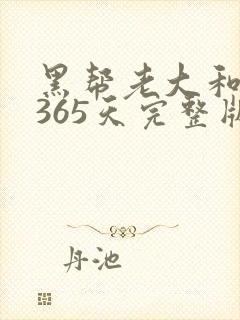 黑帮老大和
365天完整版
丹池